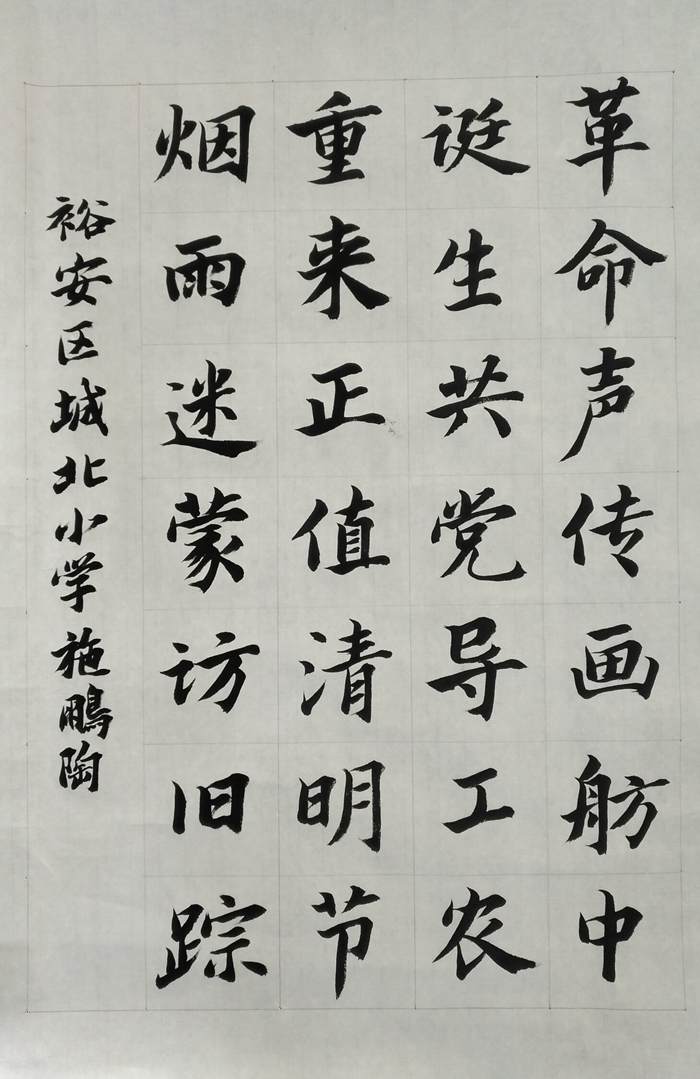 革命声传画舫中
诞生共党导工农
重来正值清明节
烟雨迷蒙访旧踪
裕安区城北小学施鹏陶